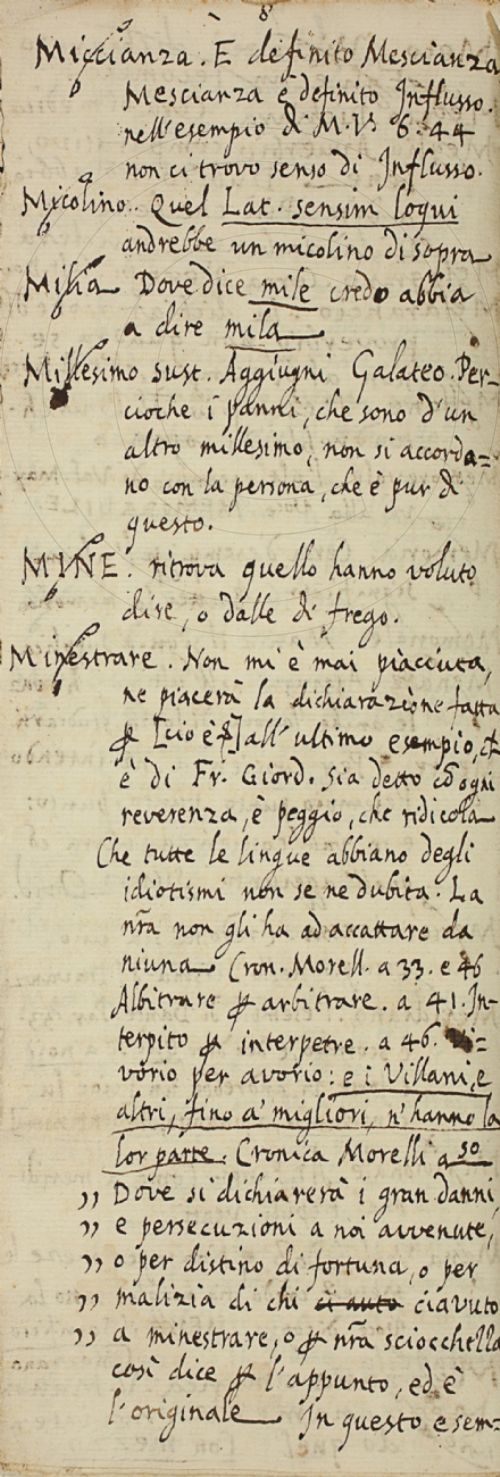 8
Miccianza. E definito Mescianza
Mescianza è definito Influsso.
nell'esempio di M.V. 6. 44
non ci trovo senso di Influsso.
Micolino. Quel Lat. sensim loqui
andrebbe un micolino di sopra
Milia Dove dice mile credo abbia
a dire mila
Millesimo sust. Aggiugni Galateo. Per-
cioche i panni, che sono d'un
altro millesimo, non si accorda=
no con la persona, che è pur di
questo.
MINE. ritrova quello hanno voluto
dire, o dalle di frego.
Minestrare. Non mi è mai piaciuta,
ne piacerà la dichiarazione fatta
ꝑ [cio è ꝑ] all'ultimo esempio, ch
è di Fr. Giord. Sia detto cō ogni
reverenza, è peggio, che ridicola
Che tutte le lingue abbiano degli
idiotismi non se ne dubita. La
nrã non gli ha ad accattare da
niuna Cron. Morell. a 33. e 46
Albitrare ꝑ arbitrare. a 41. In-
terpito ꝑ interpetre. a 46. Vi-
vorio per avorio: e i Villani, e
altri, fino a' migliori, n'hanno la
lor parte. Cronica Morelli a 50
,, Dove si dichiarerà i gran danni,
,, e persecuzioni a noi avvenute,
,, o per distino di fortuna, o per
,, malizia di chi ci auto ciavuto
,, a minestrare, o ꝑ nrã sciocchella
così dice ꝑ l'appunto, ed è
l'originale In questo esem=